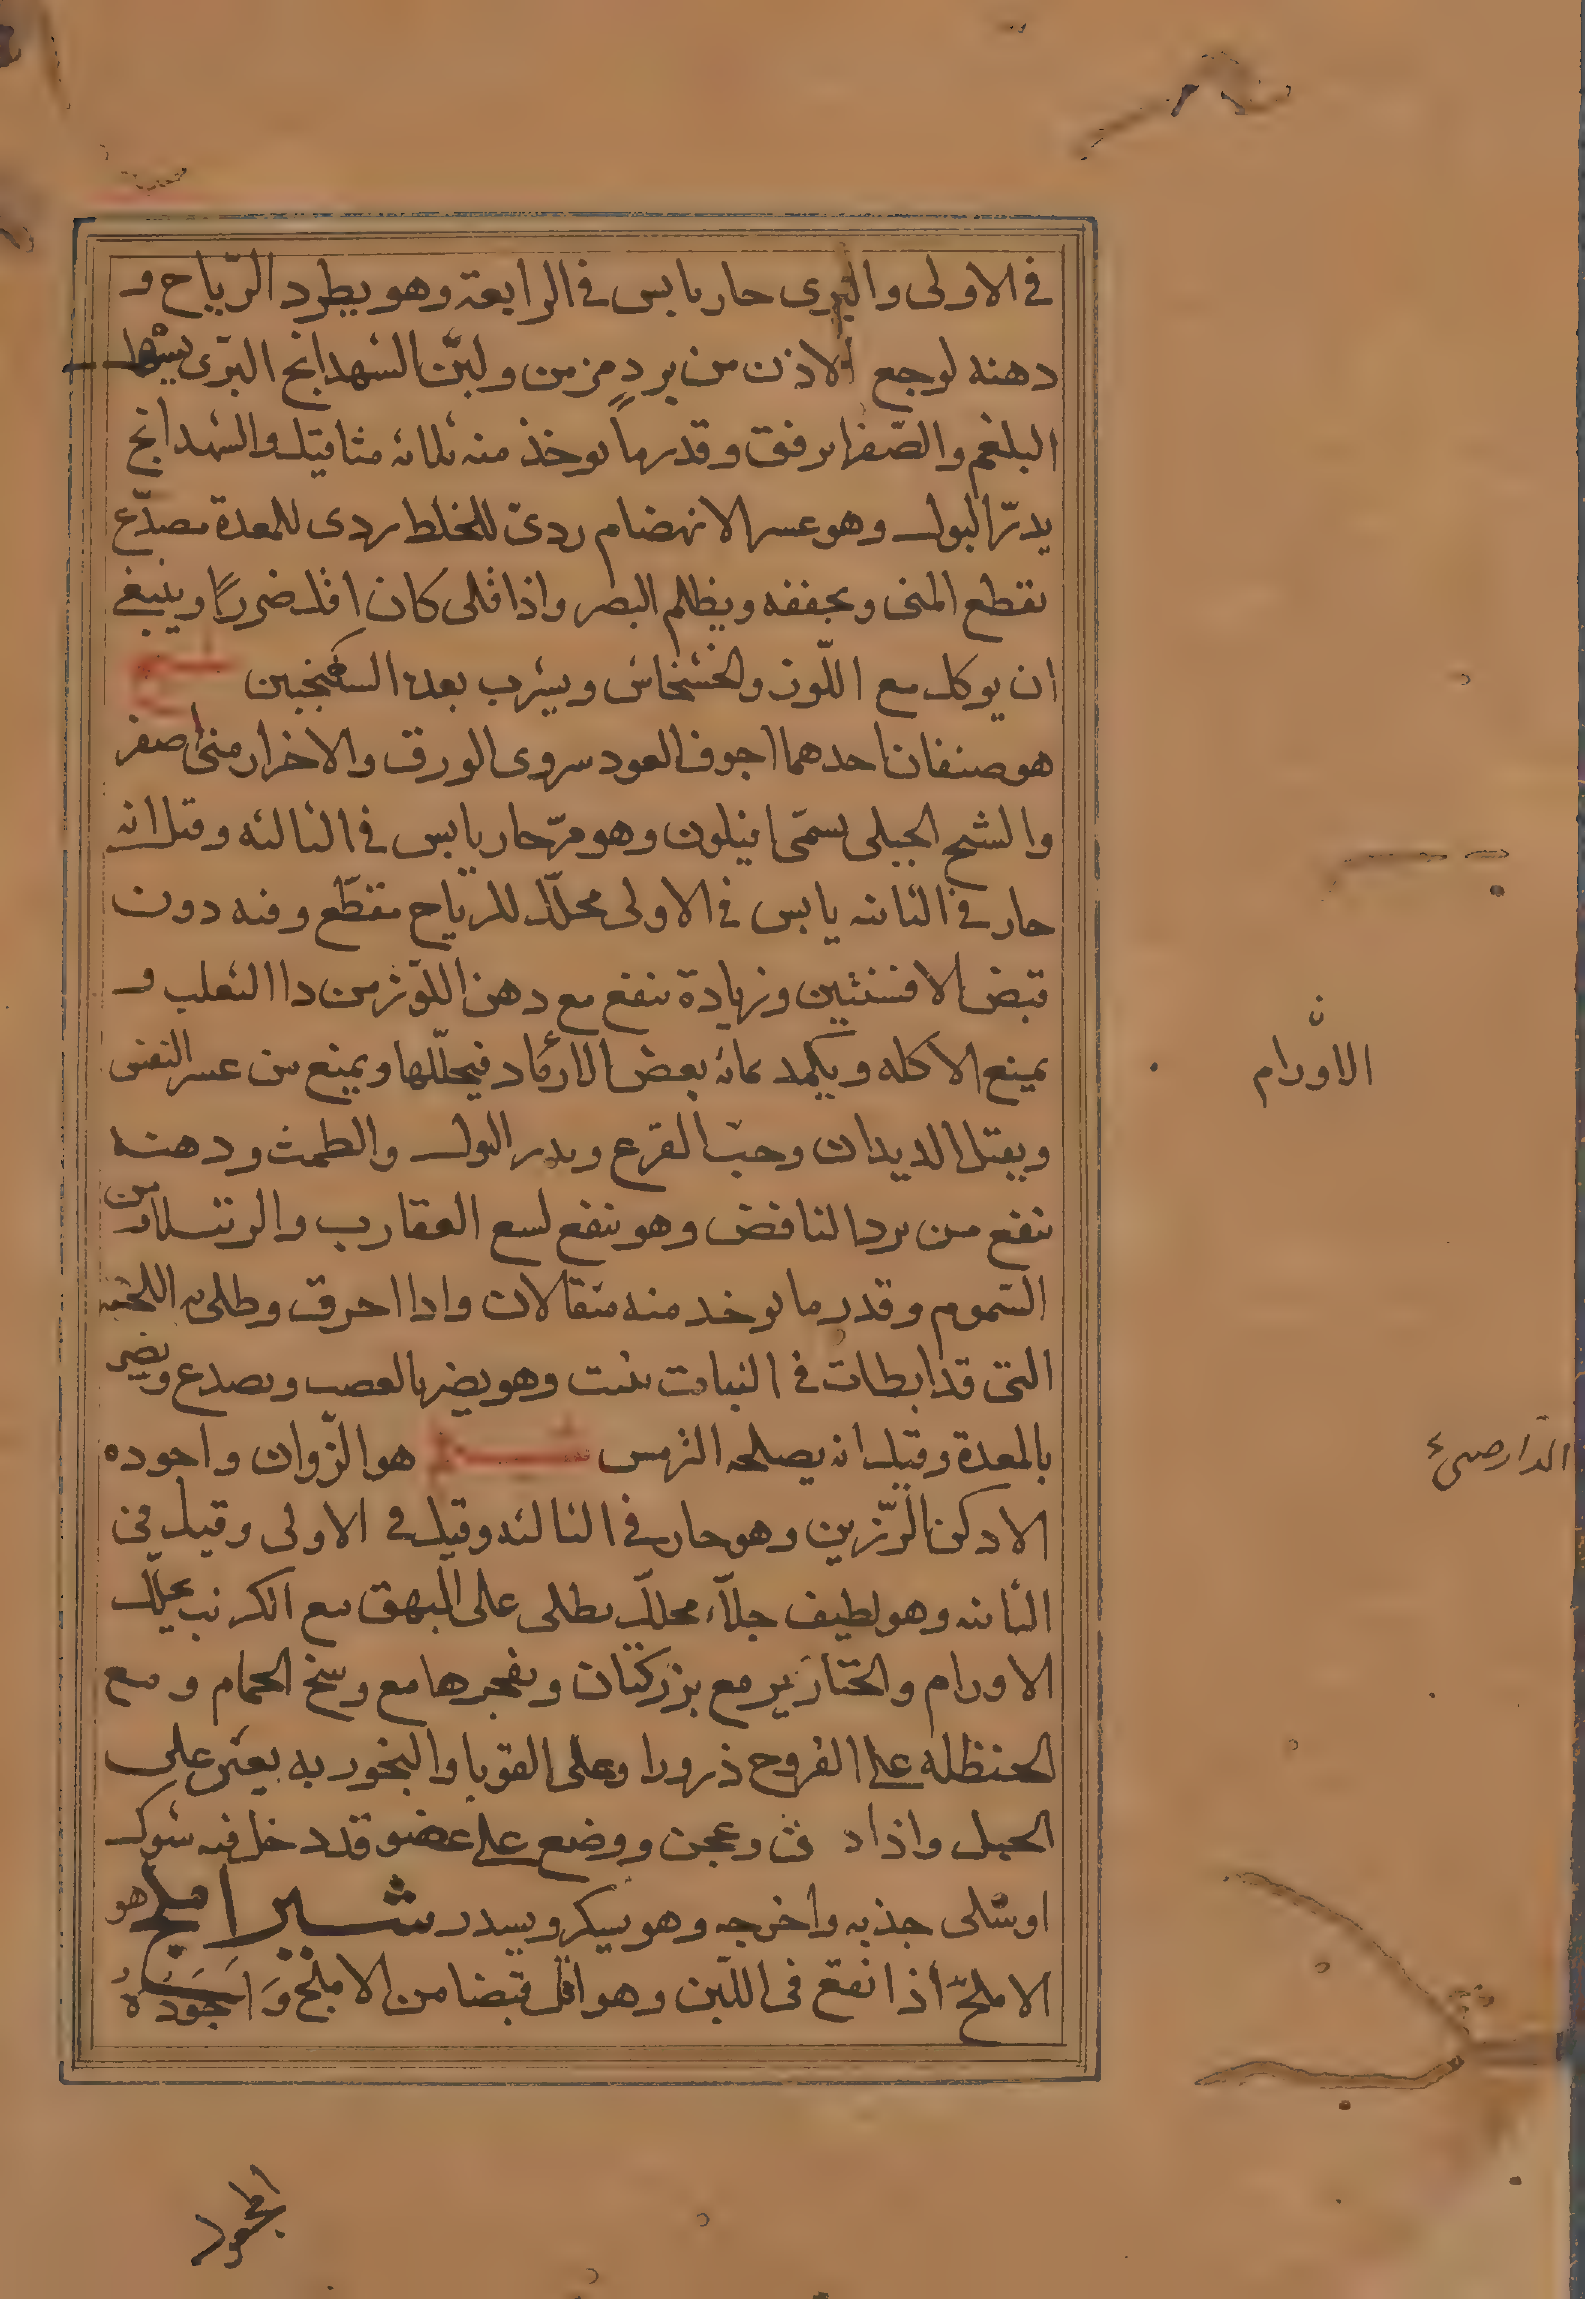 في الاولى والبرى حار يابس في الرابعة وهو يطرد الرّياح و
دهنه لوجع الاذن من بردٍ مزمن ولبن الشهدانج البرّى يسهل
البلغم والصّفرا برفق وقدر ما يوخذ منه ثلاثه مثاقيل والشهدانج
يدرّ البول وهو عسر الانهضام ردئ للخلط ردى للمعدة مصدّع
يقطع المنى ويجففه ويظلم البصر واذا قلى كان اقل ضررًا وينبغي
ان يوكل مع اللّوز والخشخاش ويشرب بعده السكنجبين شيح
هو صنفان احدهما اجوف العود سروى الورق والاخر ارمنى اصفر
والشيح الجبلى يسمّى وهو مرّ حار يابس في الثالثه وقيل انه
حار في الثانيه يابس في الاولى محلّل للرياح مقطّع وفيه دون
قبض الافسنتين وزيادة ينفع مع دهن اللّوز من دا الثعلب و
يمنع الاكله ويكمد بمائه بعض الارماد فيحلّلها ويمنع من عسر النفس
ويقتل الديدان وحبّ القرع ويدر البول والطمث ودهنه
ينفع من برد النافض وهو ينفع لسع العقارب والرتيلا ومن
السّموم وقدر ما يوخذ منه مثقالان واذا احرق وطلى به اللحيه
التى قد ابطات في النبات نبتت وهو يضر بالعصب ويصدع ويضر
بالمعدة وقيل انه يصلحه الترمس شيلم هو الزّوان واجوده
الادكن الرّزين وهو حار في الثالثه وقيل في الاولى وقيل في
الثانيه وهو لطيف جلّاء محلل يطلى على البهق مع الكرنب يحلّل
الاورام والخنازير مع بزر كتان ويفجرها مع وسخ الحمام ومع
الحنظله على القروح ذرورا وعلى القوبا والبخور به يعين على
الحبل واذا دق وعجن ووضع على عضو قد دخل فيه شوك
او سلى جذبه واخرجه وهو يسكر ويسدر شير املج هو
الاملج اذا انقع في اللبن وهو اقل قبضا من الاملج وَاَجَوَدُهُ
الاورام